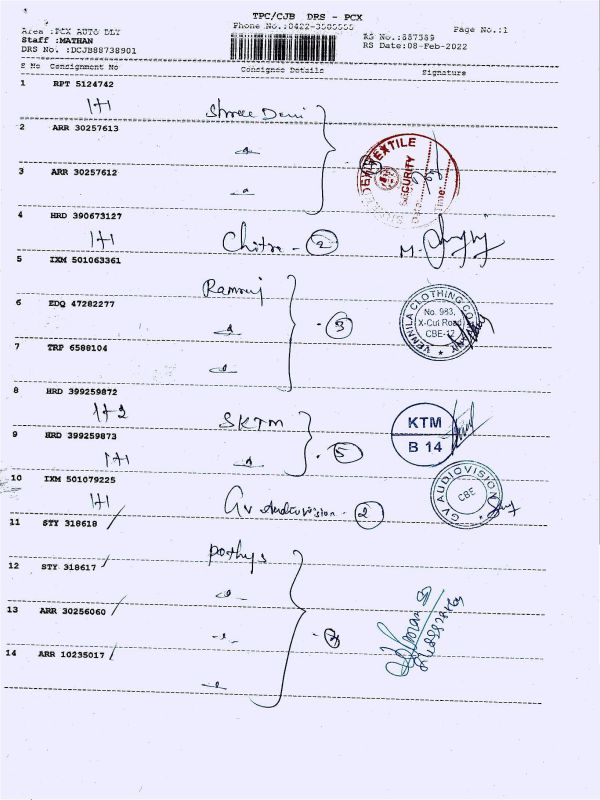 TPC/CJB DRS - PCX
Area :PCX AUTO DLY
Phone No.:0422-3505555
Page No.:1
Staff :MATHAN
RS No.:887389
DRS No. :DCJB88738901
RS Date:08-Feb-2022
S No Consignment No Consignee Details Signature
1 RPT 5124742
1+1 Shree Devi
2 ARR 30257613
TEXTILE
SECURITY
3 ARR 30257612
Time:
4 HRD 390673127
1+1 Chitra - 2
M.
5 IXM 501063361
Ramraj
6 EDQ 47282277
3
VENNILA CLOTHING COMPANY
No. 983,
X-Cut Road
CBE-12
7 TRP 6588104
8 HRD 399259872
1+2 SKTM
KTM
B 14
9 HRD 399259873
1+1
5
10 IXM 501079225
1+1 Gv Audiovision - 2
GV AUDIOVISION
CBE
11 STY 318618
Pothys
12 STY 318617
13 ARR 30256060
14 ARR 10235017